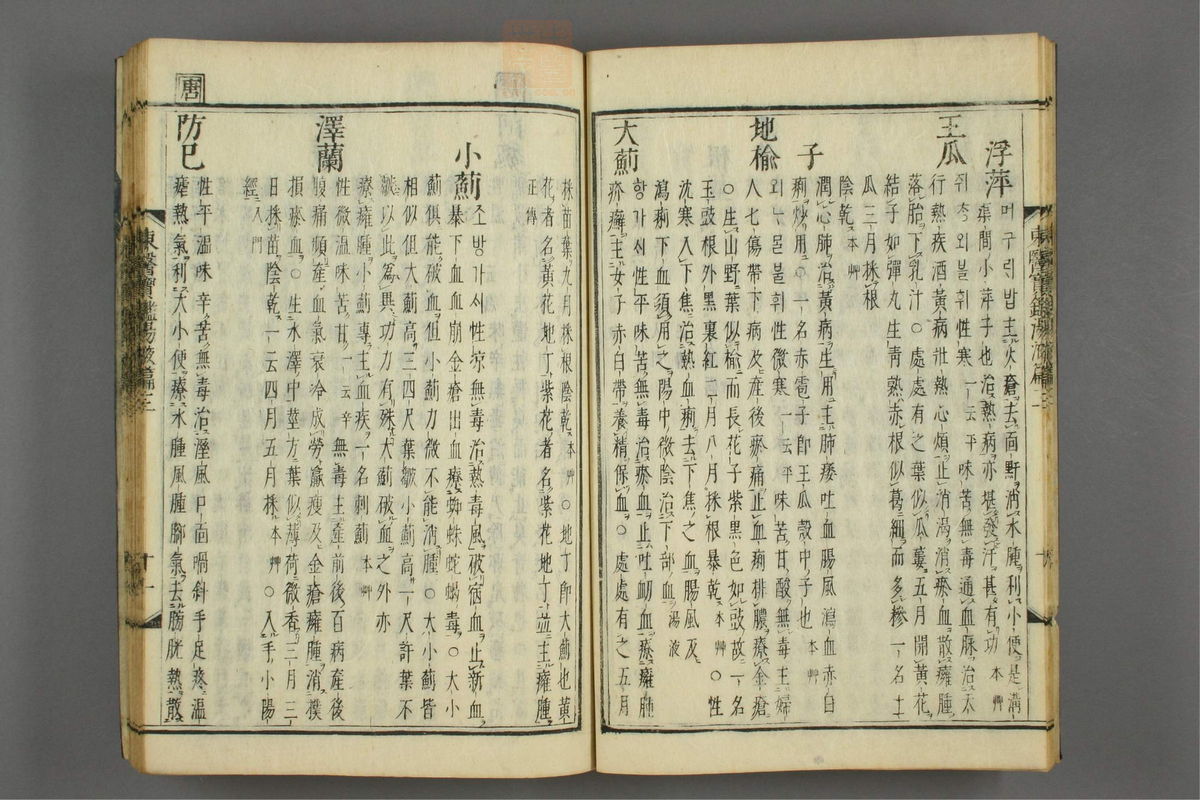 浮萍머구릭밥主火瘡去面䵟消水腫利小便是溝
渠間小萍子也治熱病亦堪發汗甚有功 本艸
王瓜 쥐ᄎᆞᆷ외불휘性寒一云平味苦無毒通血脉治天
行熱疾酒黃病壯熱心煩止消渴消瘀血散癰腫
落胎下乳汁○處處有之葉似瓜蔞五月開黃花
結子如彈丸生青熟赤根似葛細而多糝一名土
瓜三月採根
陰乾 本艸
子 潤心肺治黃病生用主肺痿吐血腸風瀉血赤白
痢炒用○一名赤雹子即王瓜殼中子也 本艸
地楡 외ᄂᆞ물불휘性微寒一云平味苦甘酸無毒主婦
人七傷帶下病及産後瘀痛止血痢排膿療金瘡
○生山野葉似楡而長花子紫黑色如豉故一名
玉豉根外黑裏紅二月八月採根暴乾 本艸 ○性
沈寒入下焦治熱血痢去下焦之血腸風及
瀉痢下血須用之陽中微陰治下部血 湯液
大薊 항가ᄉᆡ性平味苦無毒治瘀血止吐衄血療癰腫
疥癬主女子赤白帶養精保血○處處有之五月
採苗葉九月採根陰乾 本艸 ○地丁即大薊也黃
花者名黃花地丁紫花者名紫花地丁並主癰腫
正傳
小薊 조방가ᄉᆡ性凉無毒治熱毒風破宿血止新血
暴下血血崩金瘡出血療蜘蛛蛇蝎毒○大小
薊俱能破血但小薊力微不能消腫○大小薊皆
相似但大薊高三四尺葉皺小薊高一尺許葉不
皺以此爲異功力有殊大薊破血之外亦
療癰腫小薊專主血疾一名刺薊 本艸
澤蘭 性微溫味苦甘一云辛無毒主産前後百病産後
腹痛頻産血氣衰冷成勞羸瘦及金瘡癰腫消撲
損瘀血○生水澤中莖方葉似薄荷微香三月三
日採苗陰乾一云四月五月採 本艸 ○入手小陽
經 入門
唐
防已 性平溫味辛苦無毒治濕風口面喎斜手足疼溫
瘧熱氣利大小便療水腫風腫脚氣去膀胱熱散
東醫寶鑑湯液篇三
十一